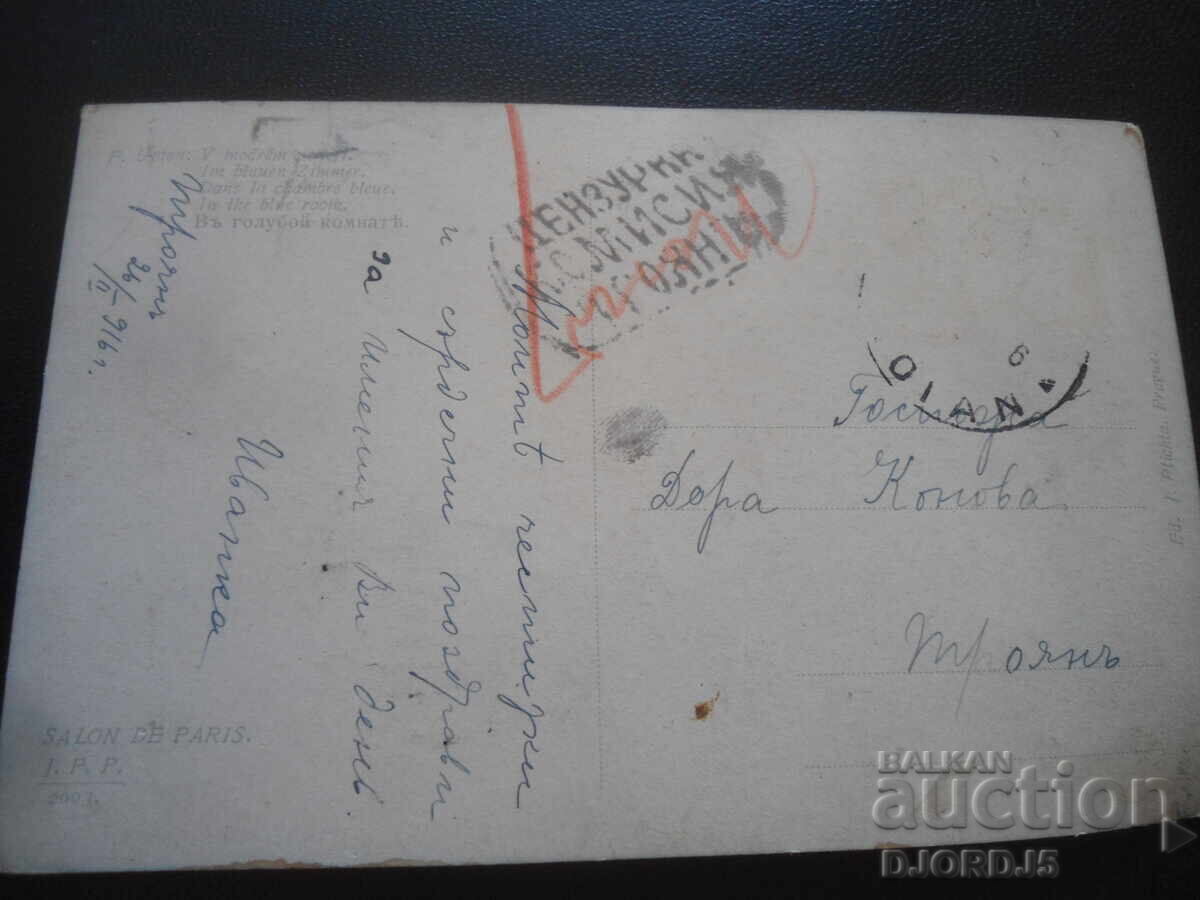 V modrém
Im blauen Zimmer.
Dans la chambre bleue.
In the blue room.
Въ голубой комнатѣ.
Троянъ
26/II 916 г.
Моитѣ честитки
и сърдечни поздрави
за именния Ви день.
Иванка
ЦЕНЗУРНА
КОМИСИЯ
ТРОЯНЪ
6
OIAN
Госпожа
Дора Конова
Троянъ
SALON DE PARIS.
J. P. P.
Prague.
BALKAN
auction
DJORDJ5